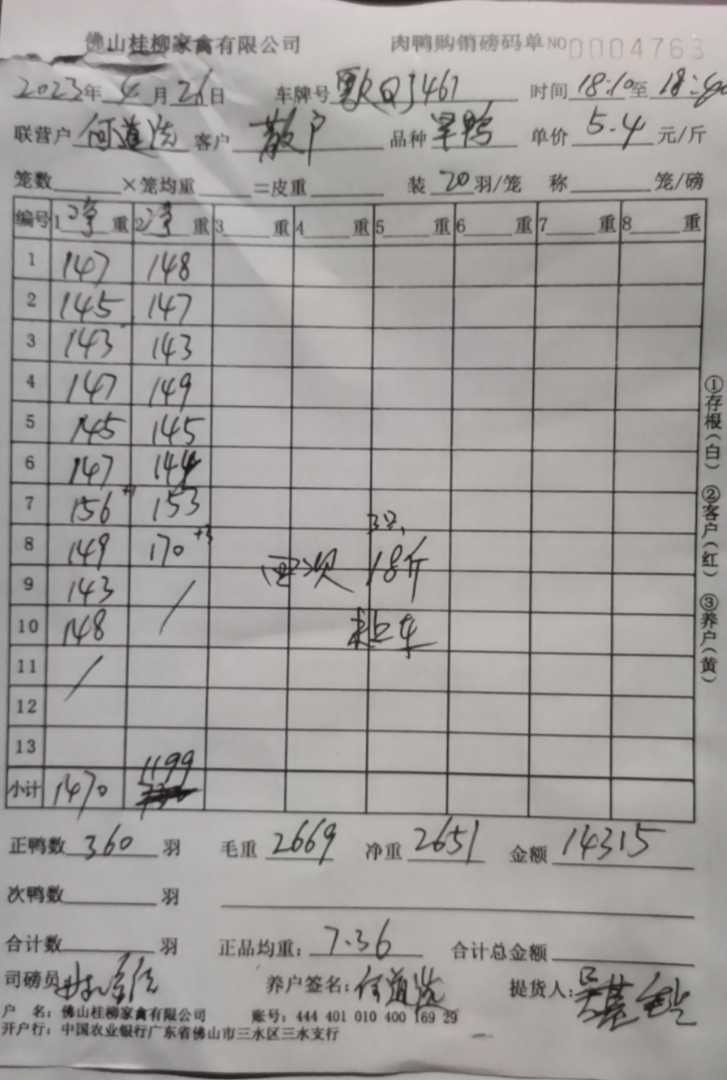 佛山桂柳家禽有限公司 肉鸭购销磅码单 NO 0004763
2023年 4月 26日 车牌号 QJ461 时间 18:10至 18:40
联营户 何道 客户 散户 品种 旱鸭 单价 5.4 元/斤
笼数 ×笼均重 =皮重 装 20 羽/笼 称 笼/磅
编号 1 净 重 2 净 重 3 重 4 重 5 重 6 重 7 重 8 重
1 147 148
2 145 147
3 143 143
4 147 149
5 145 145
6 147 144
7 156 153
8 149 170 +3
9 143 /
10 148
11 /
12
13
小计 1470 1199
3只,
次 18斤
车
①存根(白) ②客户(红) ③养户(黄)
正鸭数 360 羽 毛重 2669 净重 2651 金额 14315
次鸭数 羽
合计数 羽 正品均重: 7.36 合计总金额
司磅员 养户签名: 何道 提货人:
户 名: 佛山桂柳家禽有限公司 账号: 444 401 010 400 169 29
开户行: 中国农业银行广东省佛山市三水区三水支行